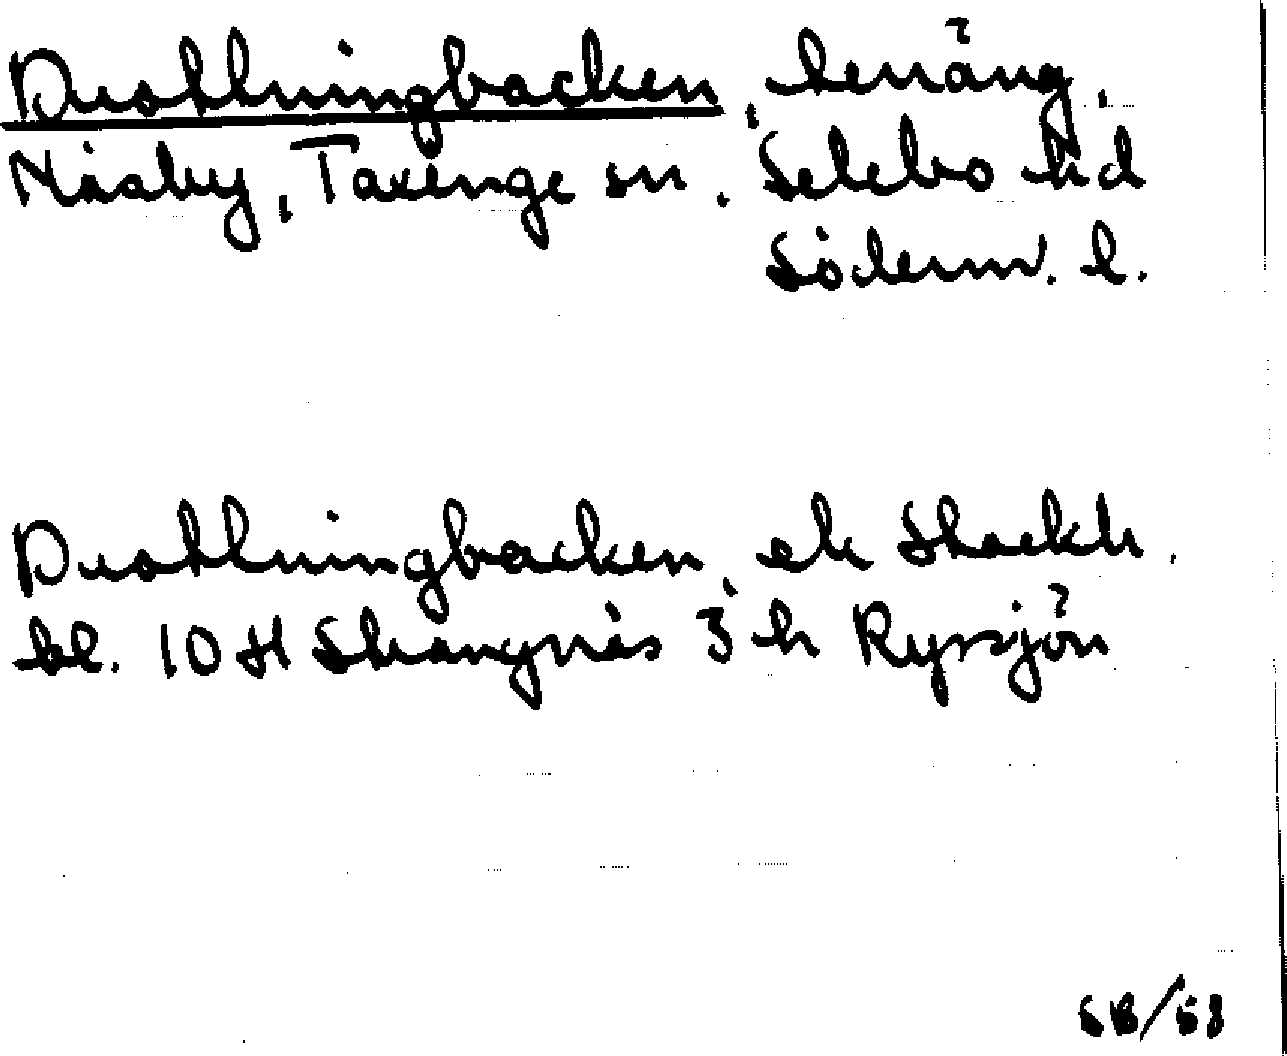 Drottningbacken, terräng,
Näsby, Taxinge sn, Selebo hd
Söderm. l.
Drottningbacken, ek Stockh.
bl. 10 H Strängnäs 3 h Ryssjön